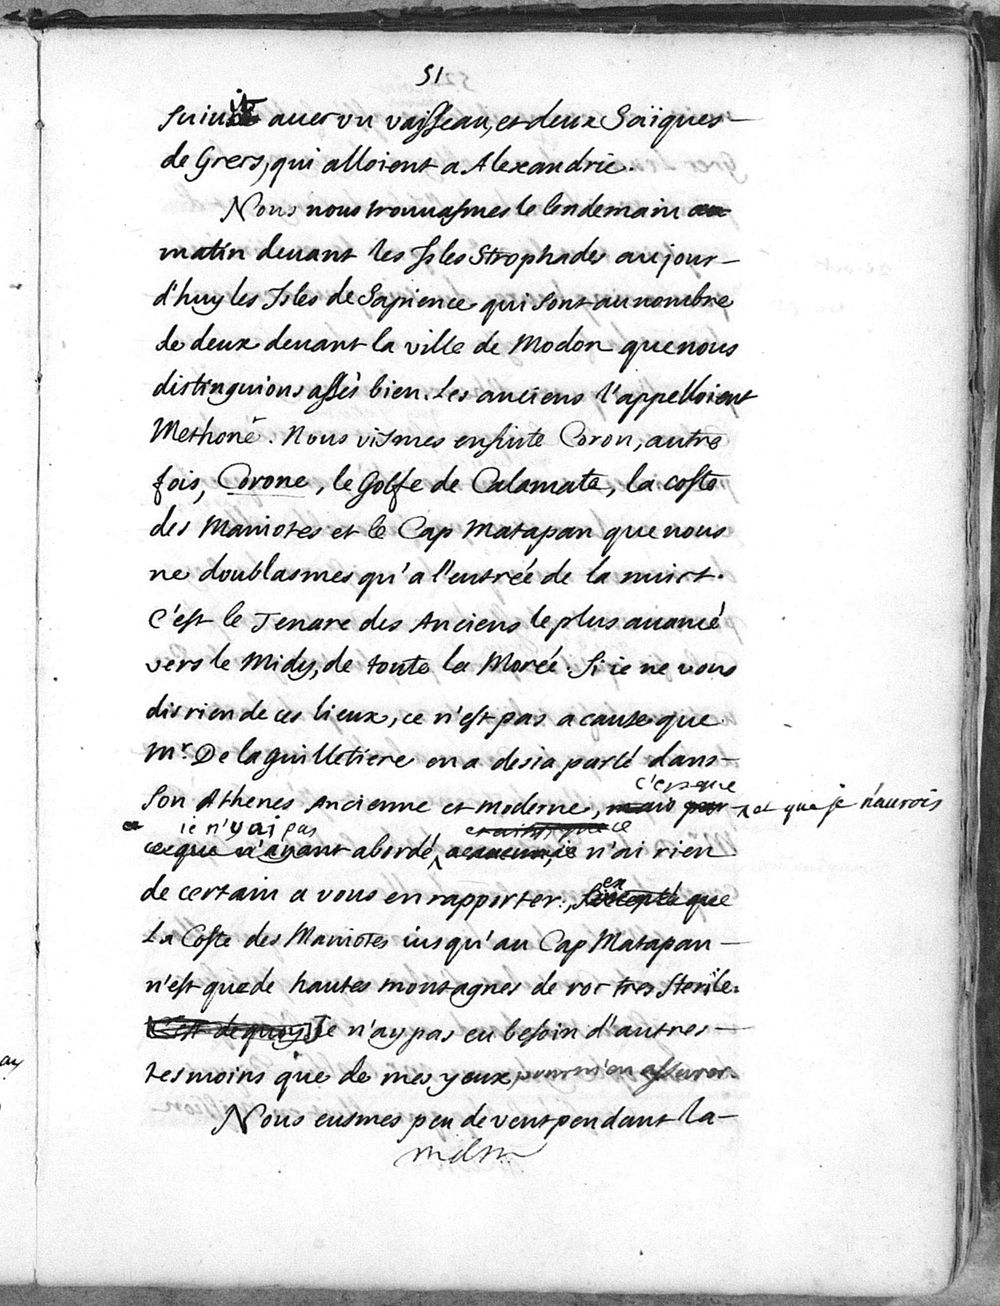 51
suiuit auec vn vaisseau, et deux Saïques
de Grecs, qui alloient a Alexandrie.
Nous nous trouuasmes le lendemain au
matin deuant les Isles Strophades aujour-
d'huy les Isles de Sapience qui sont au nombre
de deux deuant la ville de Modon que nous
distinguions assés bien. Les anciens l'appelloient
Methoné. Nous vismes ensuite Coron, autre
fois, Corone, le Golfe de Calamate, la coste
des Maniotes et le Cap Matapan que nous
ne doublasmes qu'a l'entrée de la nuict.
C'est le Tenare des Anciens le plus auancé
vers le Midy, de toute la Morée. Si ie ne vous
dis rien de ces lieux, ce n'est pas a cause que
Mr. De la Guilletiere en a desia parlé dans
c'est que
son Athenes Ancienne et moderne, mais par et que je n'aurois
ie n'y ai pas et ainsi que ce
ce que n'ayant abordé, a aucun, ie n'ai rien
ex
de certain a vous en rapporter, excepté que
La Coste des Maniotes iusqu'au Cap Matapan
n'est que de hautes montagnes de roc tres sterile.
C'est de quoy Je n'ay pas eu besoin d'autres
tesmoins que de mes yeux, pour m'en assurer.
Nous eusmes peu de vent pendant la